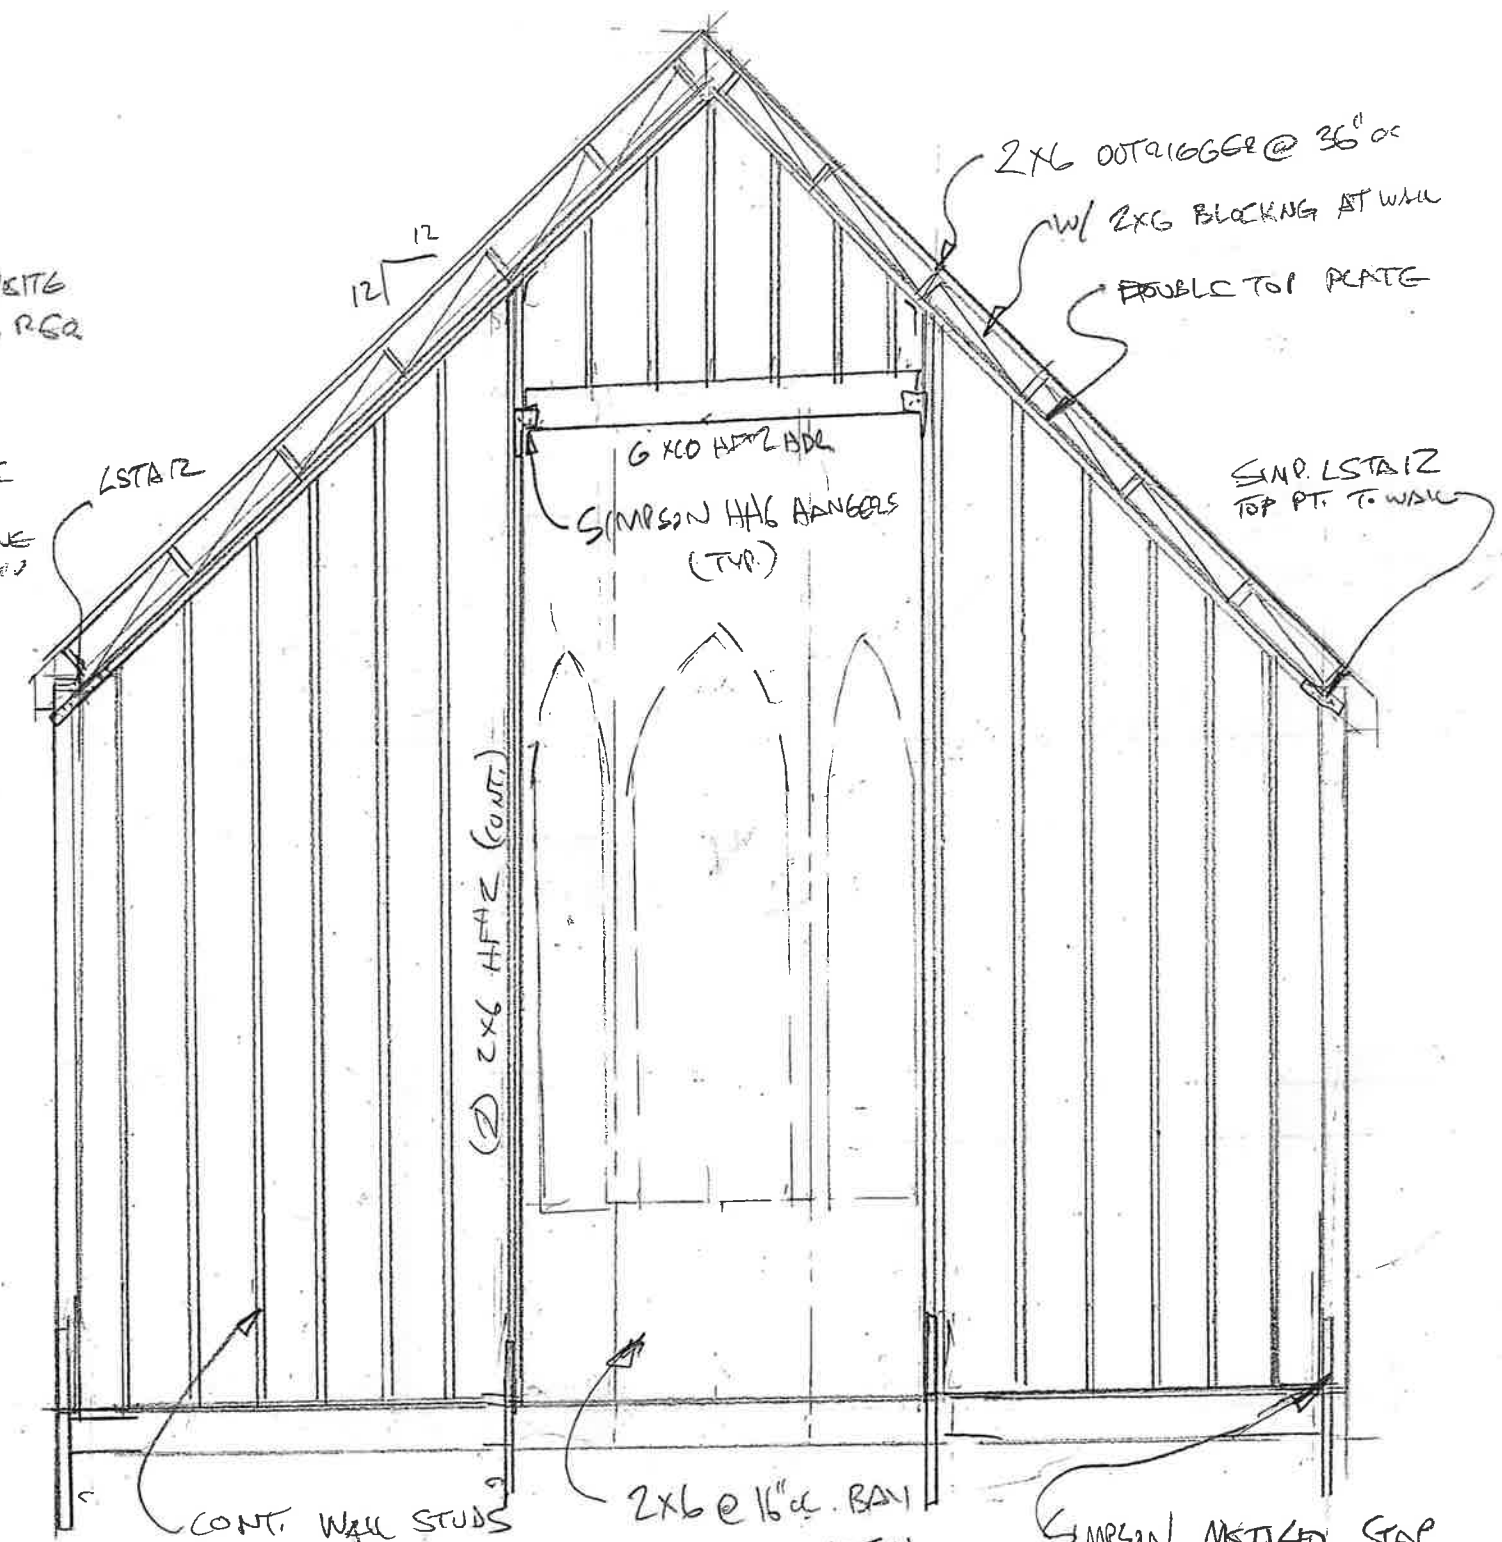 12
12
2X6 OUTRIGGER @ 36" OC
W/ 2X6 BLOCKNG AT WALL
DOUBLE TOP PLATE
REQ
LSTA12
6 X10 HF#2 HDR
SIMPSON HH6 HANGERS
(TYP.)
SIMP. LSTA12
TOP PT. TO WALL
(2) 2X6 HF#2 (CONT.)
CONT. WALL STUDS
2X6 @ 16" OC. BAY
SIMPSON